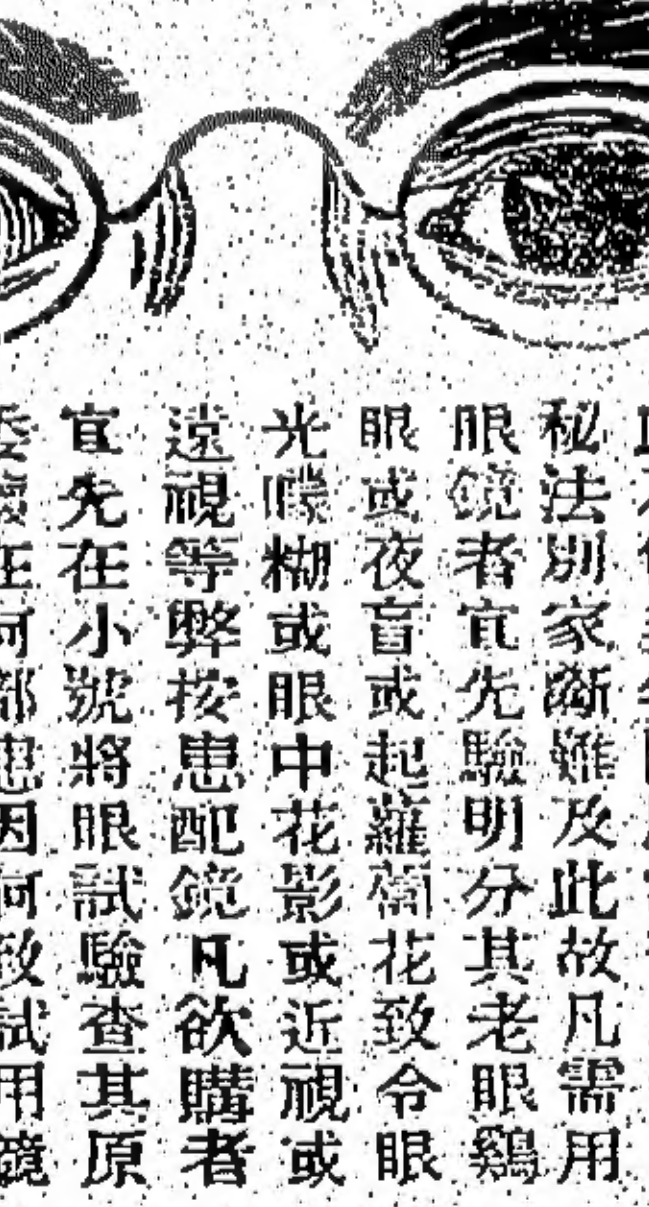 秘法別家斷難及此故凡需用
眼鏡者宜先驗明分其老眼鷄
眼或夜盲或起蘿蔔花致令眼
光矇糊或眼中花影或近視或
遠視等弊按患配鏡凡欲購者
宜先在小號將眼試驗查其原
委在何部患因何致試用鏡